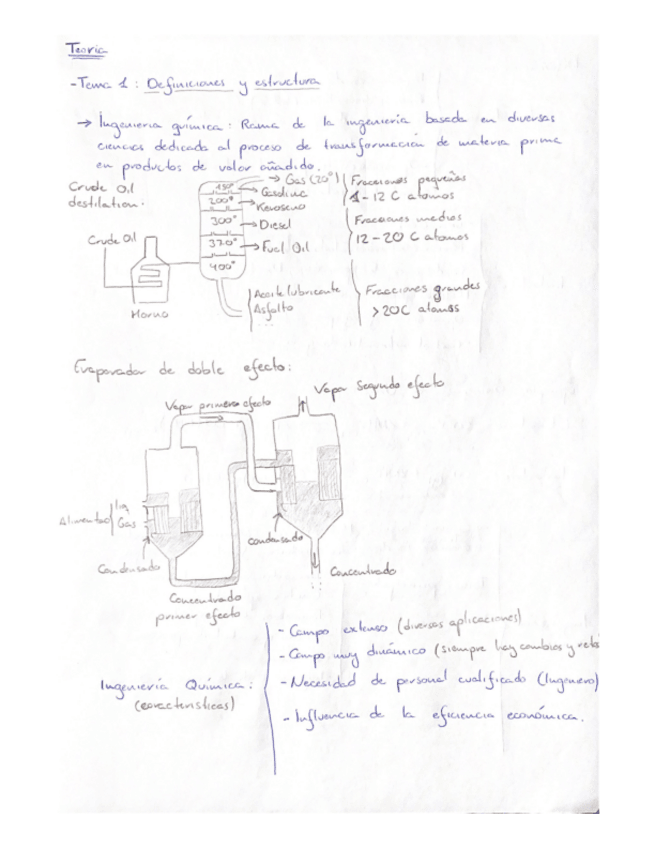 Teoría
- Tema 1: Definiciones y estructura
→ Ingeniería química: Rama de la ingeniería basada en diversas
ciencias dedicada al proceso de transformación de materia prima
en productos de valor añadido.
Crude Oil
destilation:
Crude Oil
Horno
150°
200°
300°
370°
400°
→ Gas (20°)
→ Gasolina
→ Keroseno
→ Diesel
→ Fuel Oil
Aceite lubricante
Asfalto
Fracciones pequeñas
1-12 C atomos
Fracciones medios
12-20 C atomos
Fracciones grandes
>20C atomos
Evaporador de doble efecto:
Vapor primero efecto
Vapor Segundo efecto
Alimentac
liq
Gas
Condensado
condensado
Concentrado
Concentrado
primer efecto
Ingeniería Química:
(características)
- Campo extenso (diversas aplicaciones)
- Campo muy dinámico (siempre hay cambios y reto
- Necesidad de personal cualificado (Ingeniero)
- Influencia de la eficiencia económica.